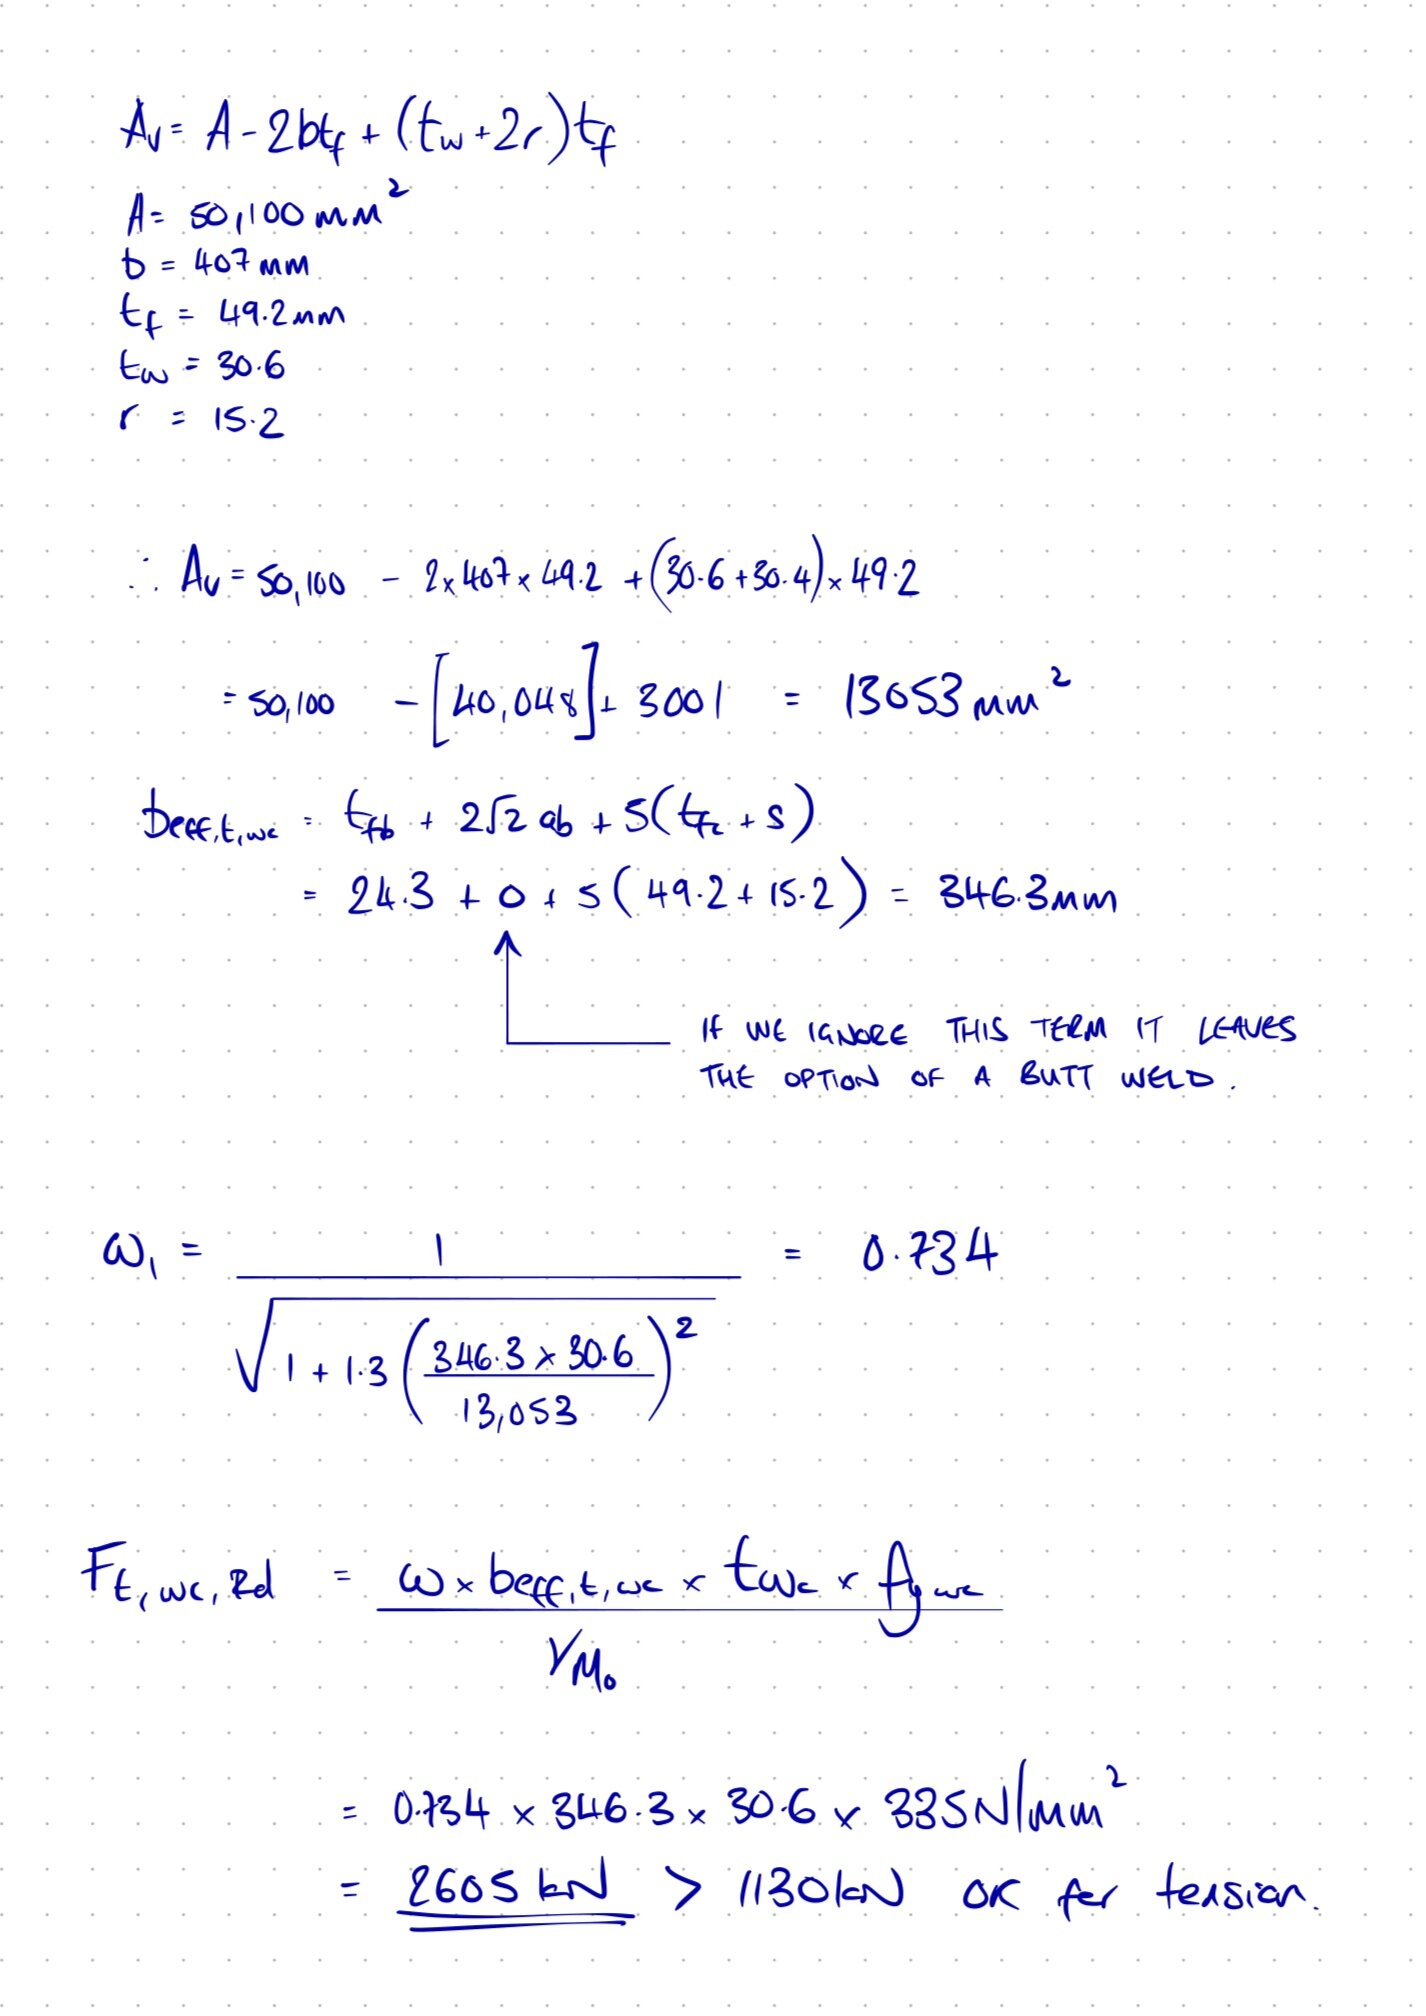 Av = A - 2btf + (tw + 2r)tf
A = 50,100 mm²
b = 407 mm
tf = 49.2 mm
tw = 30.6
r = 15.2
∴ Av = 50,100 - 2 x 407 x 49.2 + (30.6 + 30.4) x 49.2
= 50,100 - [40,048] + 3001 = 13053 mm²
beff,t,wc = tfb + 2√2 ab + 5(tfc + s)
= 24.3 + 0 + 5(49.2 + 15.2) = 346.3mm
IF WE IGNORE THIS TERM IT LEAVES
THE OPTION OF A BUTT WELD.
ω1 = 1 / √(1 + 1.3 (346.3 x 30.6 / 13,053)²) = 0.734
Ft,wc,Rd = ω x beff,t,wc x twc x fy wc / γM0
= 0.734 x 346.3 x 30.6 x 335N/mm²
= 2605 kN > 1130kN OK for tension.